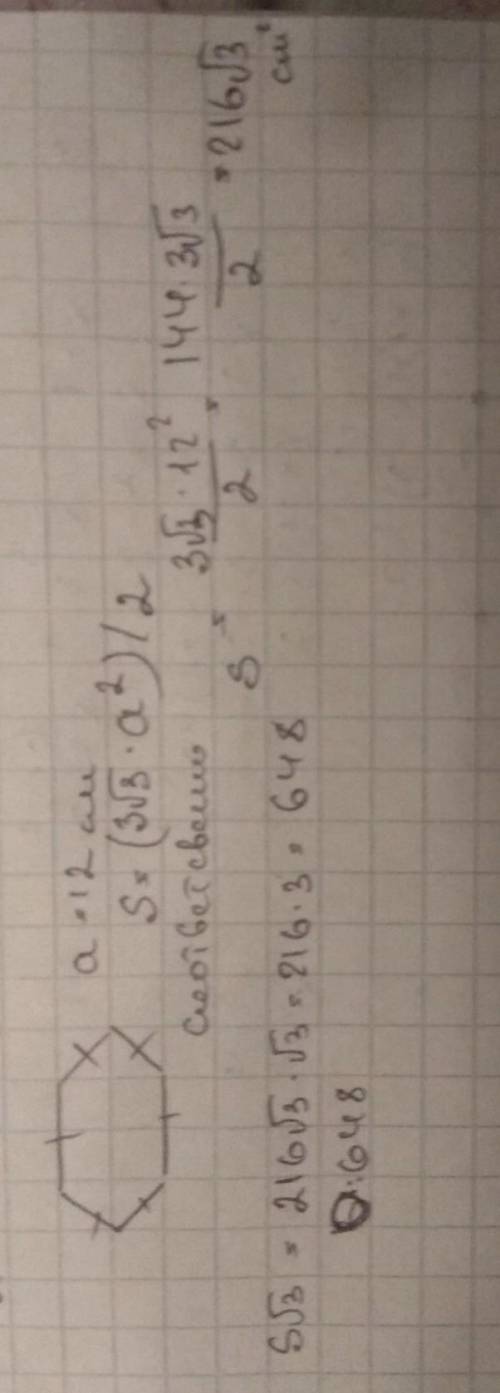 a = 12 см
S = (3√3 · a²) / 2
соответсвенно
S = 3√3 · 12² / 2 = 144 · 3√3 / 2 = 216√3 см²
S√3 = 216√3 · √3 = 216 · 3 = 648
О: 648